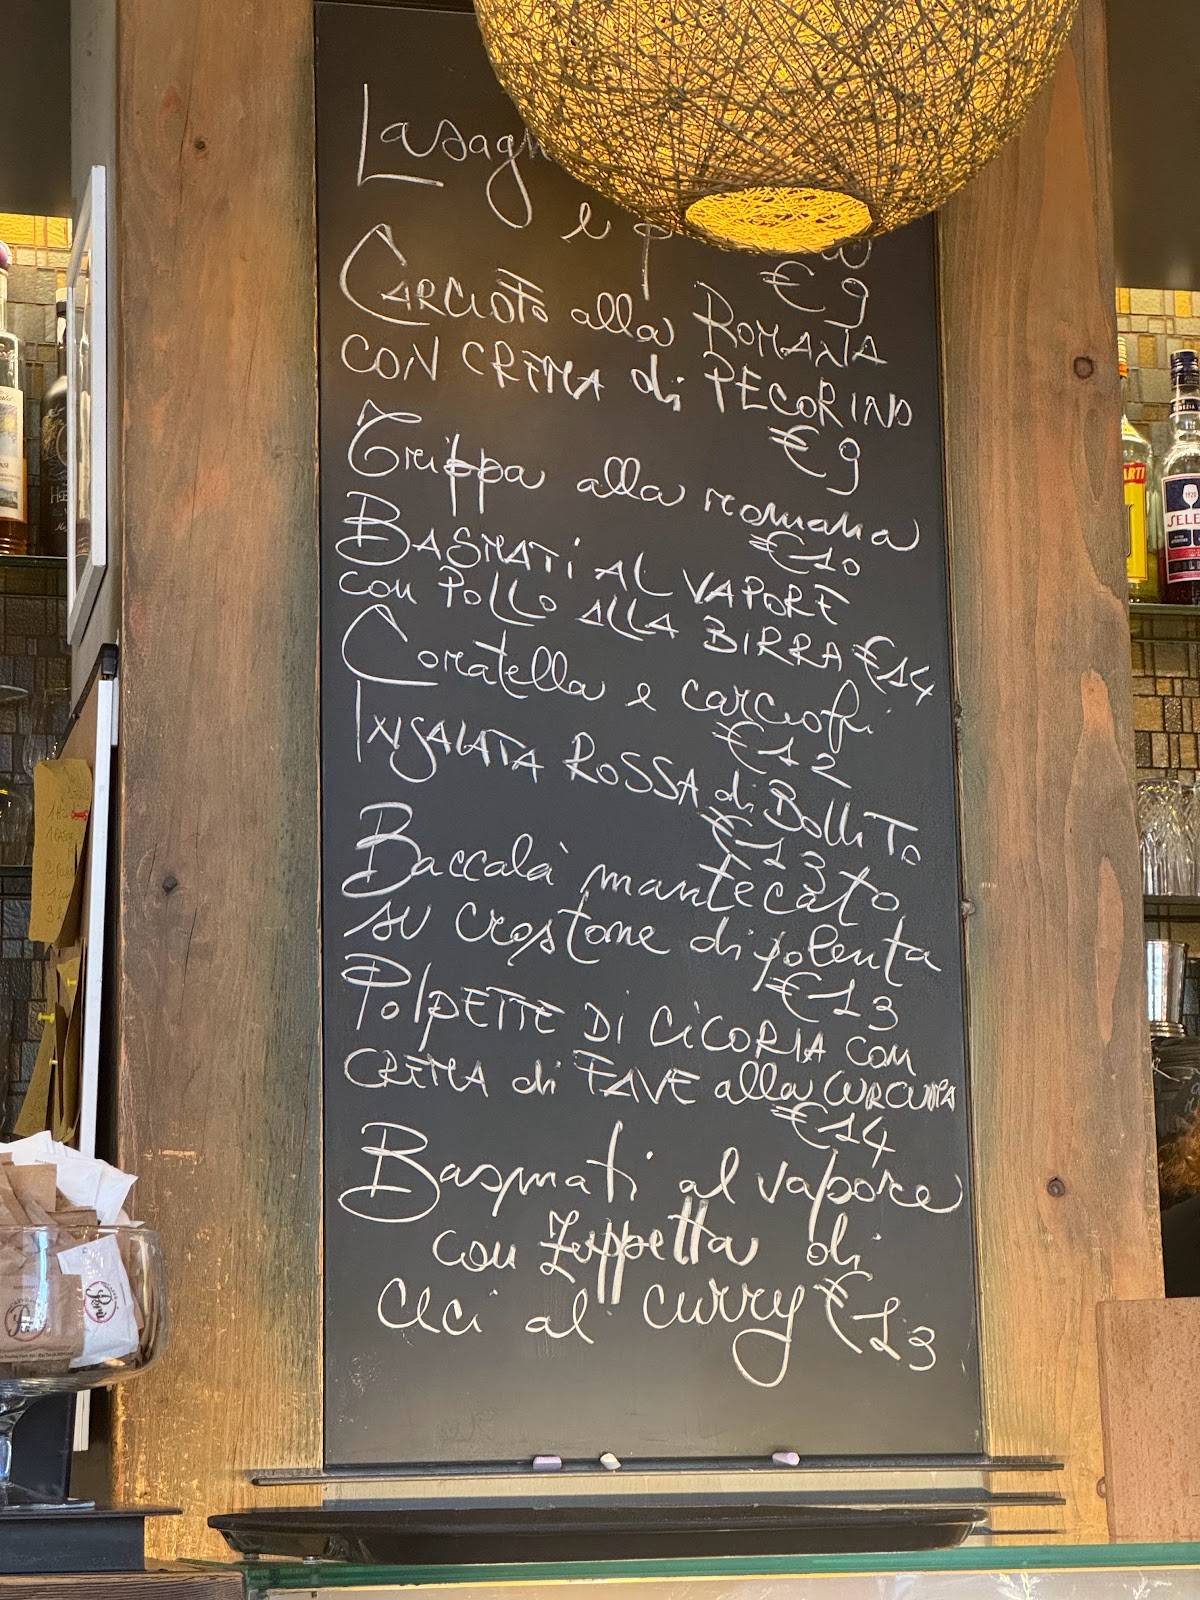 e
€ 9
CARCIOFO alla ROMANA
CON CREMA di PECORINO
€ 9
Trippa alla romana
€ 10
BASMATI AL VAPORE
con POLLO ALLA BIRRA € 14
Coratella e carciofi
€ 12
INSALATA ROSSA di BOLLITO
€ 13
Baccalà mantecato
su crostone di polenta
€ 13
POLPETTE DI CICORIA con
CREMA di FAVE alla CURCUMA
€ 14
Basmati al vapore
con zuppetta di
Ceci al curry € 13
ARTI
SELE